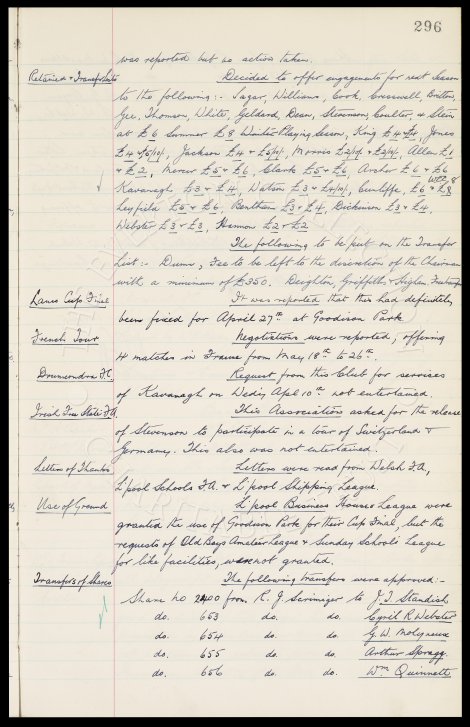 296
was reported but no action taken.
Retained & Transfer Lists Decided to offer engagements for next season
to the following:- Sagar, Williams, Cook, Cresswell, Britton,
Gee, Thomson, White, Geldard, Dean, Stevenson, Coulter, & Stein
at £6 Summer £8 Winter Playing Season, King £4 & £4, Jones
£4 & £5/10/-, Jackson £4 & £5/10/-, Morris £2/10/- & £2/10/-, Allen £1
& £2, Mercer £5 & £6, Clarke £5 & £6, Archer £6 & £6
Kavanagh £3 & £4, Watson £3 & £4/10/-, Cunliffe, £6 & £8
Leyfield £5 & £6, Bentham £3 & £4, Dickinson £3 & £4,
Webster £3 & £3, Hannon £2 & £2
The following to be put on the Transfer
List:- Dunn, Fee to be left to the discretion of the Chairman
with a minimum of £350. Deighton, Griffiths & Higham. Free transfers
Lancs Cup Final It was reported that this had definitely
been fixed for April 27th at Goodison Park
French Tour Negotiations were reported, offering
4 matches in France from May 18th to 26th.
Drumcondra F.C. Request from this Club for services
of Kavanagh on Wedy, Apl 10th not entertained.
Irish Free State F.A. This Association asked for the release
of Stevenson to participate in a tour of Switzerland &
Germany. This also was not entertained.
Letters of Thanks Letters were read from Welsh F.A,
L'pool Schools F.A. & L'pool Shipping League.
Use of Ground L'pool Business Houses League were
granted the use of Goodison Park for their Cup Final, but the
requests of Old Boys Amateur League & Sunday Schools League
for like facilities, were not granted.
Transfers of Shares The following transfers were approved:-
Share No 2400 from R. J. Scrimiger to J. T Standish
do. 653 do. do. Cyril R Webster
do. 654 do. do. G. W. Molyneux
do. 655 do. do. Arthur Spragg
do. 656 do. do. Wm Quinnett